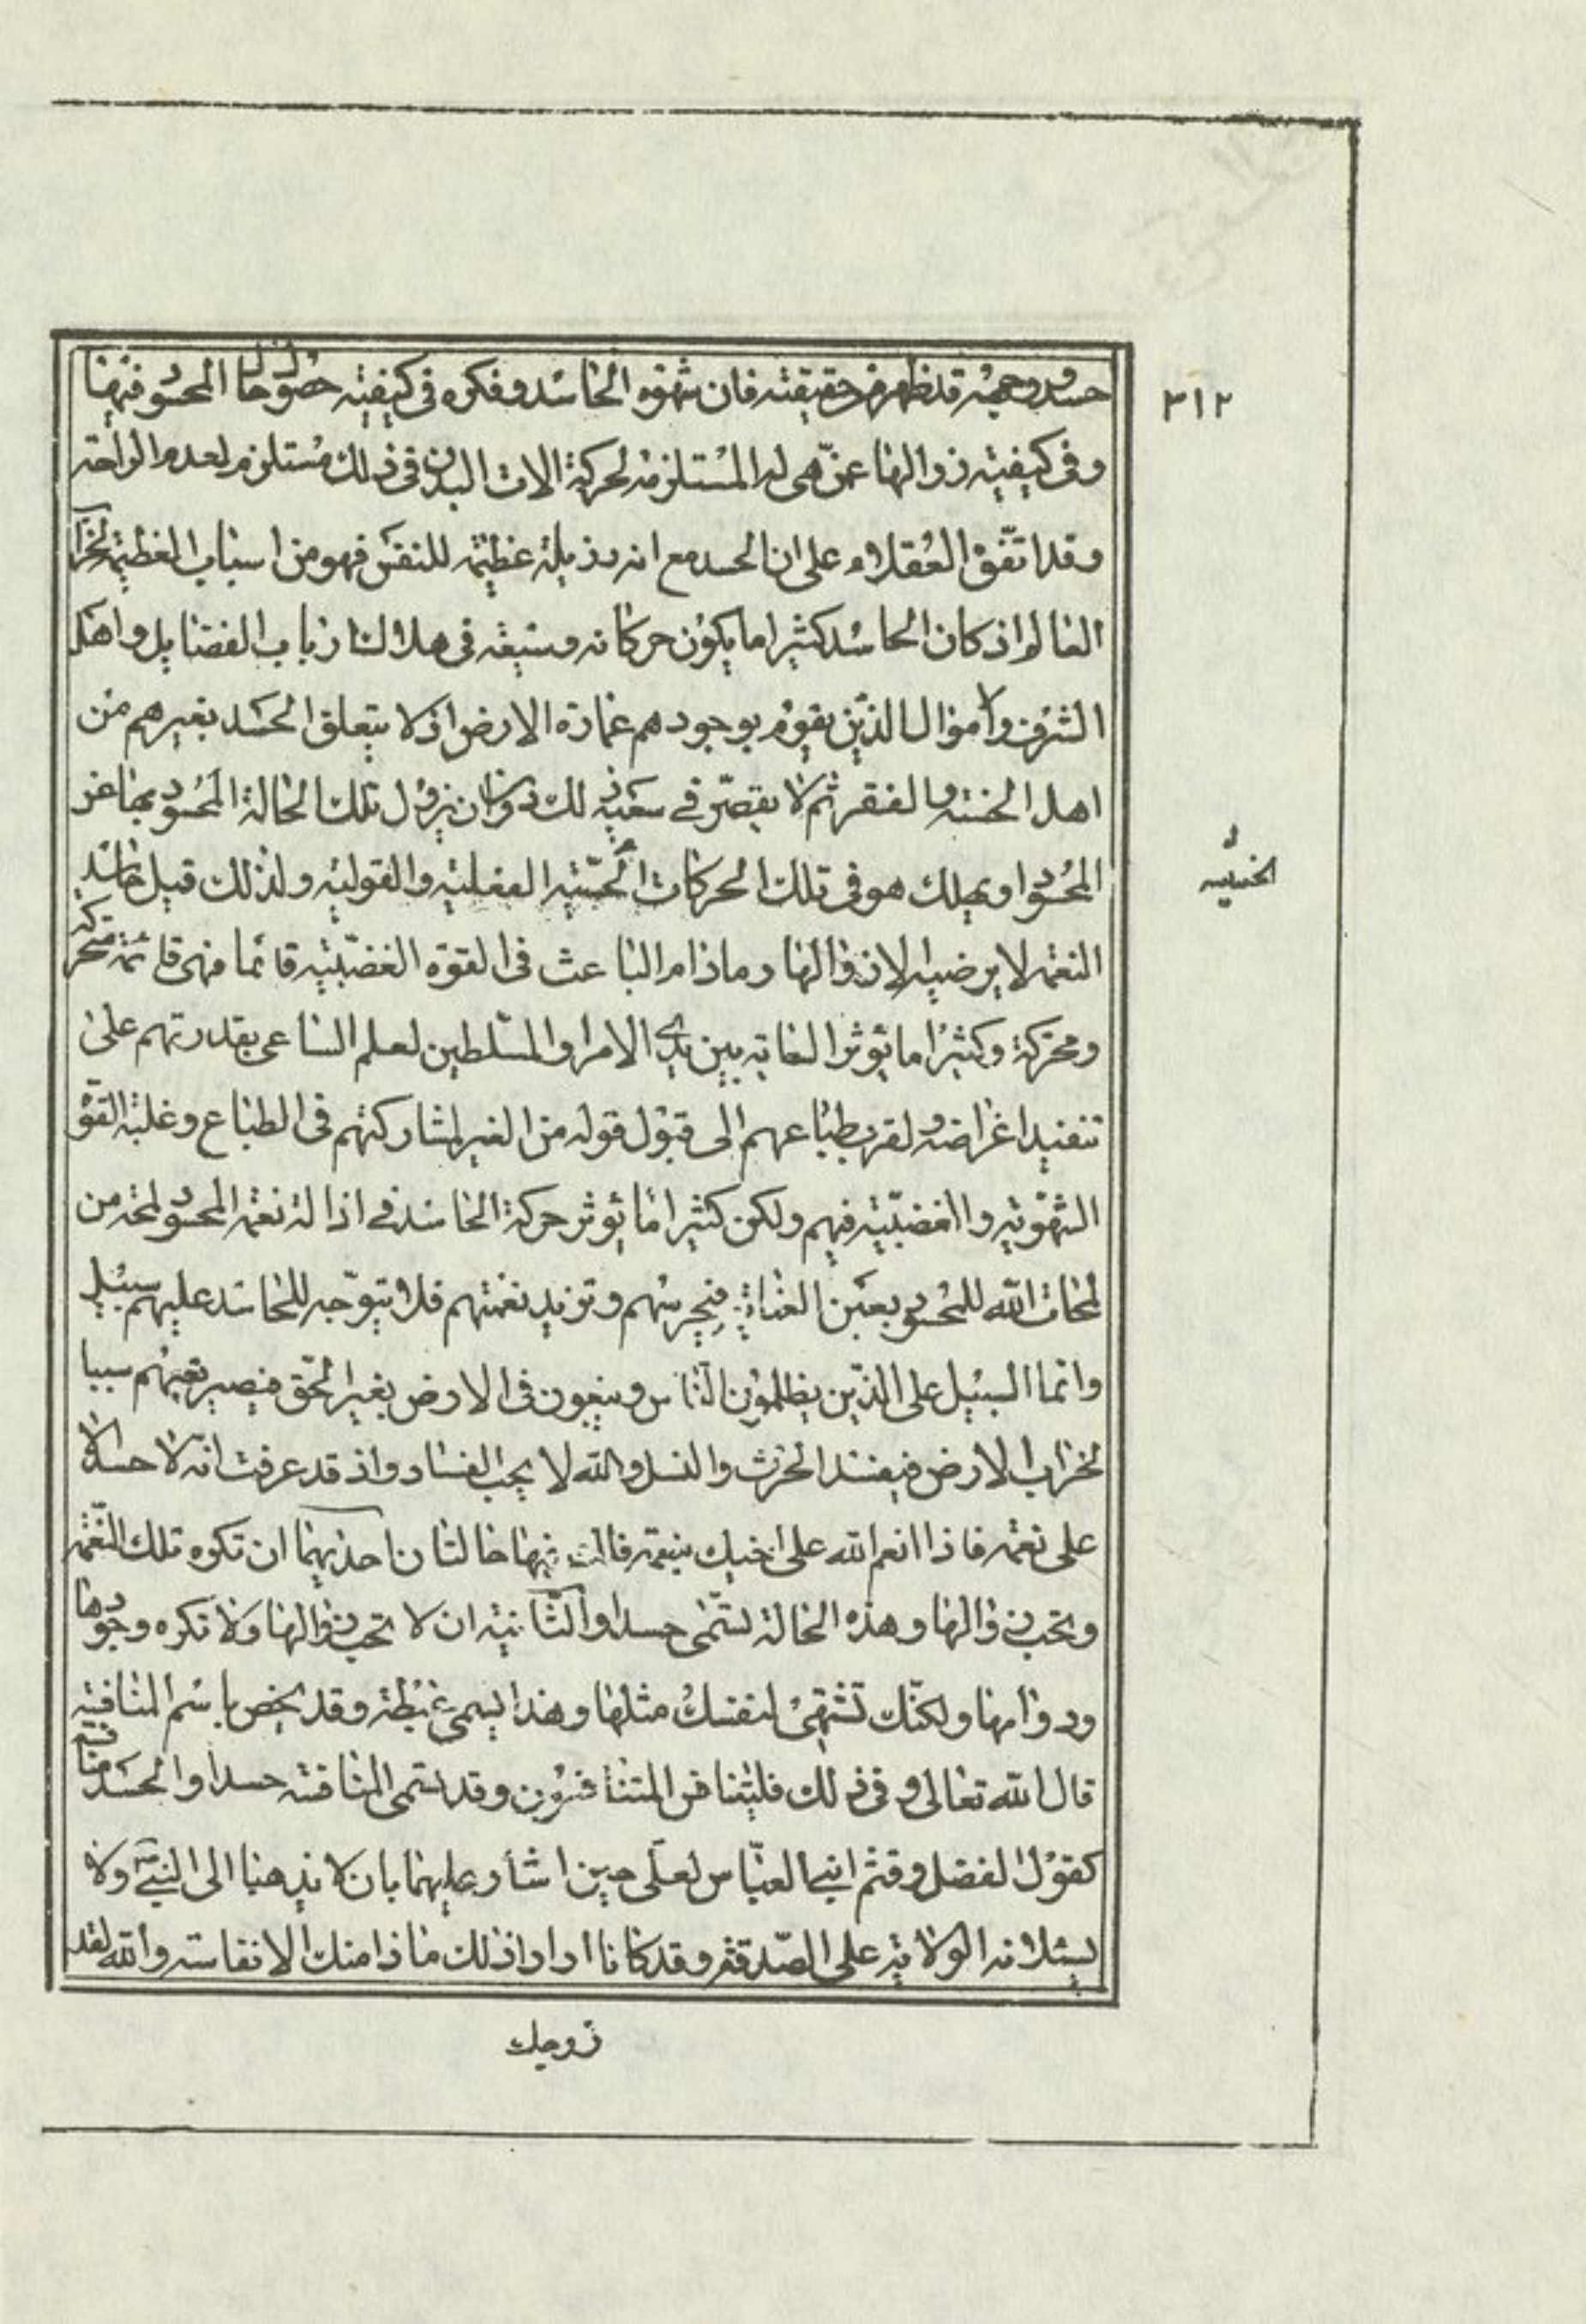 حسده وجهنه قد ظهر من حقيقته فان شهوه الحاسد وفكره فى كيفيته حصول حال المحسود فيها
٣١٢
وفى كيفيته زوالها عمن هى له المستلزمة لحركة الات البدن فى ذلك مستلزم لعدم الراحة
وقد اتفق العقلاء على ان الحسد مع انه رذيلة عظيمة للنفس فهو من اسباب العظيمة لخراب
العالم اذ كان الحاسد كثيرا ما يكون حركاته وسعيه فى هلاك ارباب الفضايل واهل
الشرف والاموال الذين يقوم بوجودهم عمارة الارض اذ لا يتعلق الحسد بغيرهم من
اهل الخسة والفقر ثم لا يقصر فى سعيه ذلك دون ان يزول تلك الحالة المحسود بها عن
المحسود او يهلك هو فى تلك الحركات الحسية الفعلية والقولية ولذلك قيل حاسد
الخسية
النعمة لا يرضيه الا زوالها وما دام الباعث فى القوة الغضبية قائما فهى قائمة متحركة
ومحركة وكثيرا ما يؤثر السعاية بين يدى الامرا والمسلطين لعلم الساعى بقدرتهم على
تنفيذ اغراضه ولقرب طباعهم الى قبول قوله من الغير لمشاركتهم فى الطباع وغلبة القوة
الشهوية والغضبية فيهم ولكن كثيرا ما يؤثر حركة الحاسد فى ازالة نعمة المحسود لمحة من
لمحات الله للمحسود بعين العناية فيحرسهم وتزيد نعمتهم فلا يتوجه للحاسد عليهم سبيل
وانما السبيل على الذين يظلمون الناس ويبغون فى الارض بغير الحق فيصير بغيهم سببا
لخراب الارض فيفسد الحرث والنسل والله لا يحب الفساد واذ قد عرفت انه لا حسد الا
على نعمة فاذا انعم الله على اخيك بنعمة فالك فيها حالتان احديهما ان تكره تلك النعمة
وتحب زوالها وهذه الحالة تسمى حسدا والثانية ان لا تحب زوالها ولا تكره وجودها
ودوامها ولكنك تشتهى لنفسك مثلها وهذا يسمى غبطة وقد يخص باسم المنافسة
قال الله تعالى وفى ذلك فليتنافس المتنافسون وقد تسمى المنافسة حسدا والحسد منافسة
كقول الفضل وقثم ابنى العباس لعلى حين اشار عليهما بان لا يذهبا الى النبى ولا
يسئلانه الولاية على الصدقة وقد كانا ارادا ذلك ما ذا منك الا نفاسة والله لقد
زوجك